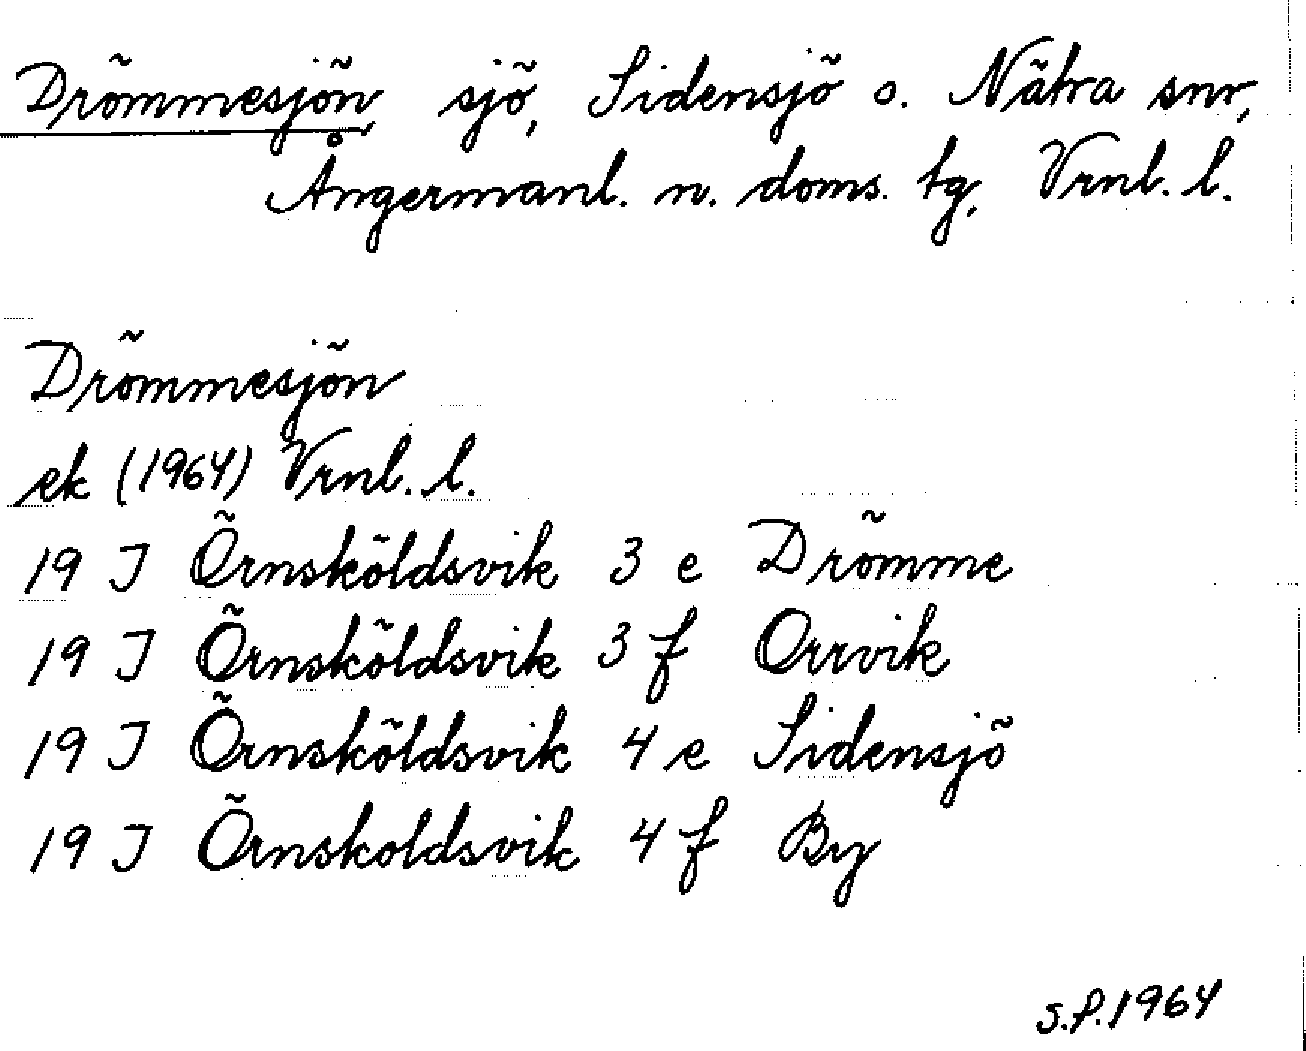 Drömmesjön sjö, Sidensjö o. Nätra snr,
Ångermanl. n. doms. tg, Vrnl. l.
Drömmesjön
ek (1964) Vrnl. l.
19 J Örnsköldsvik 3 e Drömme
19 J Örnsköldsvik 3 f Orrvik
19 J Örnsköldsvik 4 e Sidensjö
19 J Örnskoldsvik 4 f By
S.P. 1964